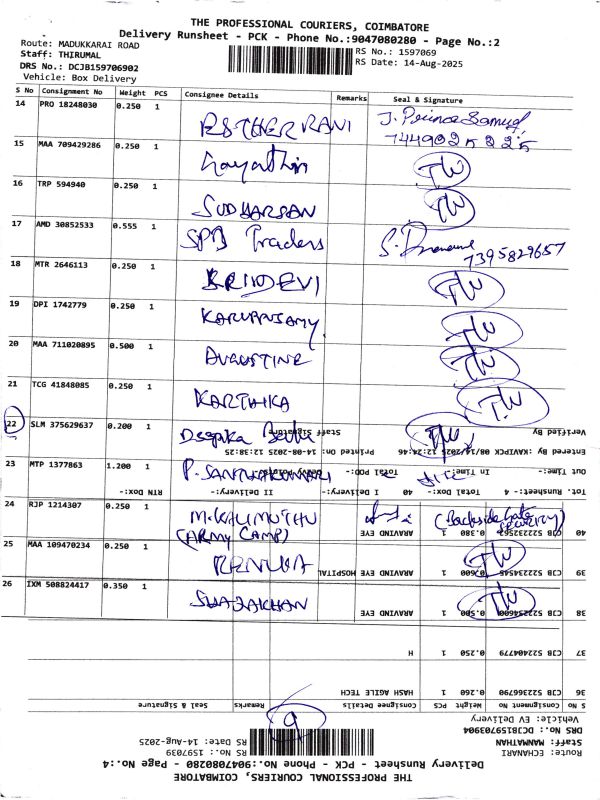 THE PROFESSIONAL COURIERS, COIMBATORE
Delivery Runsheet - PCK - Phone No.:9047080280 - Page No.:2
Route: MADUKKARAI ROAD
Staff: THIRUMAL
DRS No.: DCJB159706902
Vehicle: Box Delivery
RS No.: 1597069
RS Date: 14-Aug-2025
S No Consignment No Weight PCS Consignee Details Remarks Seal & Signature
14 PRO 18248030 0.250 1 ESTHER RANI J. Prince Samuel
15 MAA 709429286 0.250 1 Gayathiri TW
16 TRP 594940 0.250 1 SUDHARSAN TW
17 AMD 30852533 0.555 1 SPB Traders 7395829657
18 MTR 2646113 0.250 1 SRIDEVI TW
19 DPI 1742779 0.250 1 KARUPPSAMY TW
20 MAA 711020895 0.500 1 AUGUSTINE TW
21 TCG 41848085 0.250 1 KARTHIKA T.W
22 SLM 375629637 0.200 1 Deepika TW
23 MTP 1377863 1.200 1 P. SANTHAKUMARI
24 RJP 1214307 0.250 1 M. KALIMUTHU
(ARMY CAMP) (Backside Gate
Security)
25 MAA 109470234 0.250 1 RENUKA TW
26 IXM 508824417 0.350 1 SHAJAKHAN TW
Verified By
Staff Signature
Entered By: XAVIPCK 08/14/2025 12:24:46 Printed on: 14-08-2025 12:38:25
Out Time:- In Time:- Total POD:-
Tot. Runsheet:- 4 Total Box:- 40 I Delivery:- II Delivery:- RTN Box:-
40 CJB 0.380 1 ARAVIND EYE
39 CJB 522234545 0.600 1 ARAVIND EYE HOSPITAL
38 CJB 522254600 0.500 1 ARAVIND EYE
37 CJB 522404779 0.250 1 H
36 CJB 522366790 0.260 1 HASH AGILE TECH
S No Consignment No Weight PCS Consignee Details Remarks Seal & Signature
9
Vehicle: EV Delivery
DRS No.: DCJB159703904
Staff: MANNATHAN
Route: ECHANARI
RS Date: 14-Aug-2025
RS No.: 1597039
Delivery Runsheet - PCK - Phone No.:9047080280 - Page No.:4
THE PROFESSIONAL COURIERS, COIMBATORE